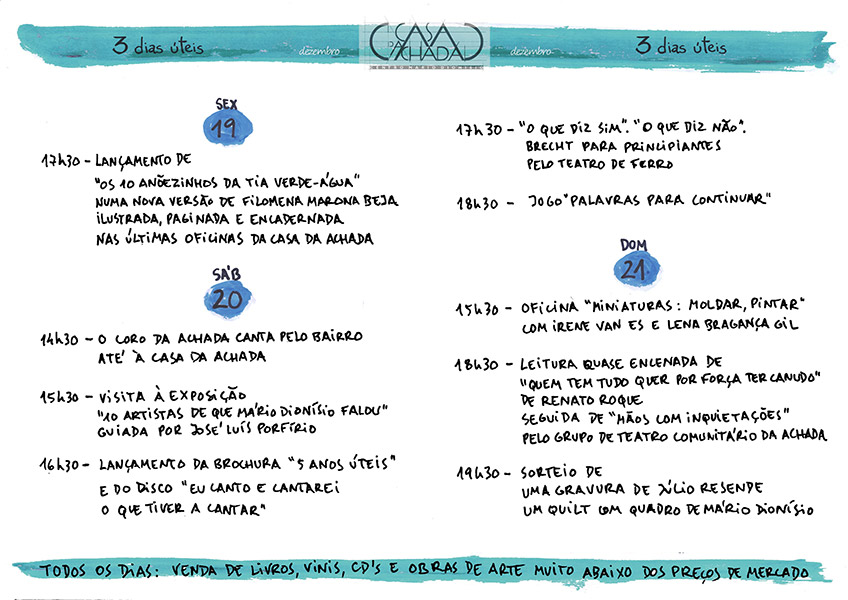 3 dias úteis
dezembro
CASA
DA
ACHADA
CENTRO MÁRIO DIONÍSIO
dezembro
3 dias úteis
SEX
19
17h30 - LANÇAMENTO DE
"OS 10 ANÕEZINHOS DA TIA VERDE-ÁGUA"
NUMA NOVA VERSÃO DE FILOMENA MARONA BEJA
ILUSTRADA, PAGINADA E ENCADERNADA
NAS ÚLTIMAS OFICINAS DA CASA DA ACHADA
SÁB
20
14h30 - O CORO DA ACHADA CANTA PELO BAIRRO
ATÉ À CASA DA ACHADA
15h30 - VISITA À EXPOSIÇÃO
"10 ARTISTAS DE QUE MÁRIO DIONÍSIO FALOU"
GUIADA POR JOSÉ LUÍS PORFÍRIO
16h30 - LANÇAMENTO DA BROCHURA "5 ANOS ÚTEIS"
E DO DISCO "EU CANTO E CANTAREI
O QUE TIVER A CANTAR"
17h30 - "O QUE DIZ SIM". "O QUE DIZ NÃO".
BRECHT PARA PRINCIPIANTES
PELO TEATRO DE FERRO
18h30 - JOGO "PALAVRAS PARA CONTINUAR"
DOM
21
15h30 - OFICINA "MINIATURAS: MOLDAR, PINTAR"
COM IRENE VAN ES E LENA BRAGANÇA GIL
18h30 - LEITURA QUASE ENCENADA DE
"QUEM TEM TUDO QUER POR FORÇA TER CANUDO"
DE RENATO ROQUE
SEGUIDA DE "MÃOS COM INQUIETAÇÕES"
PELO GRUPO DE TEATRO COMUNITÁRIO DA ACHADA
19h30 - SORTEIO DE
UMA GRAVURA DE JÚLIO RESENDE
UM QUILT COM QUADRO DE MÁRIO DIONÍSIO
TODOS OS DIAS: VENDA DE LIVROS, VINIS, CD'S E OBRAS DE ARTE MUITO ABAIXO DOS PREÇOS DE MERCADO